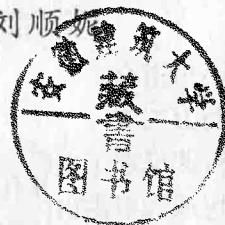 刘顺妮
安徽建筑大学
藏書
图书馆